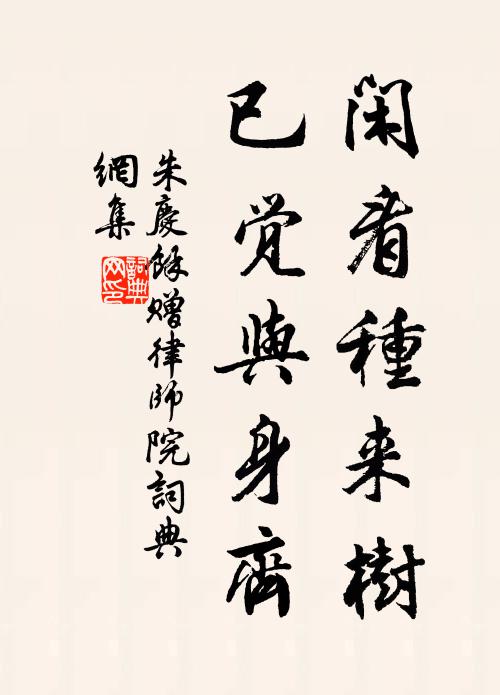 閑看種来樹
已覚與身齊
朱慶餘贈律師院詞典
網集
詞典
网印